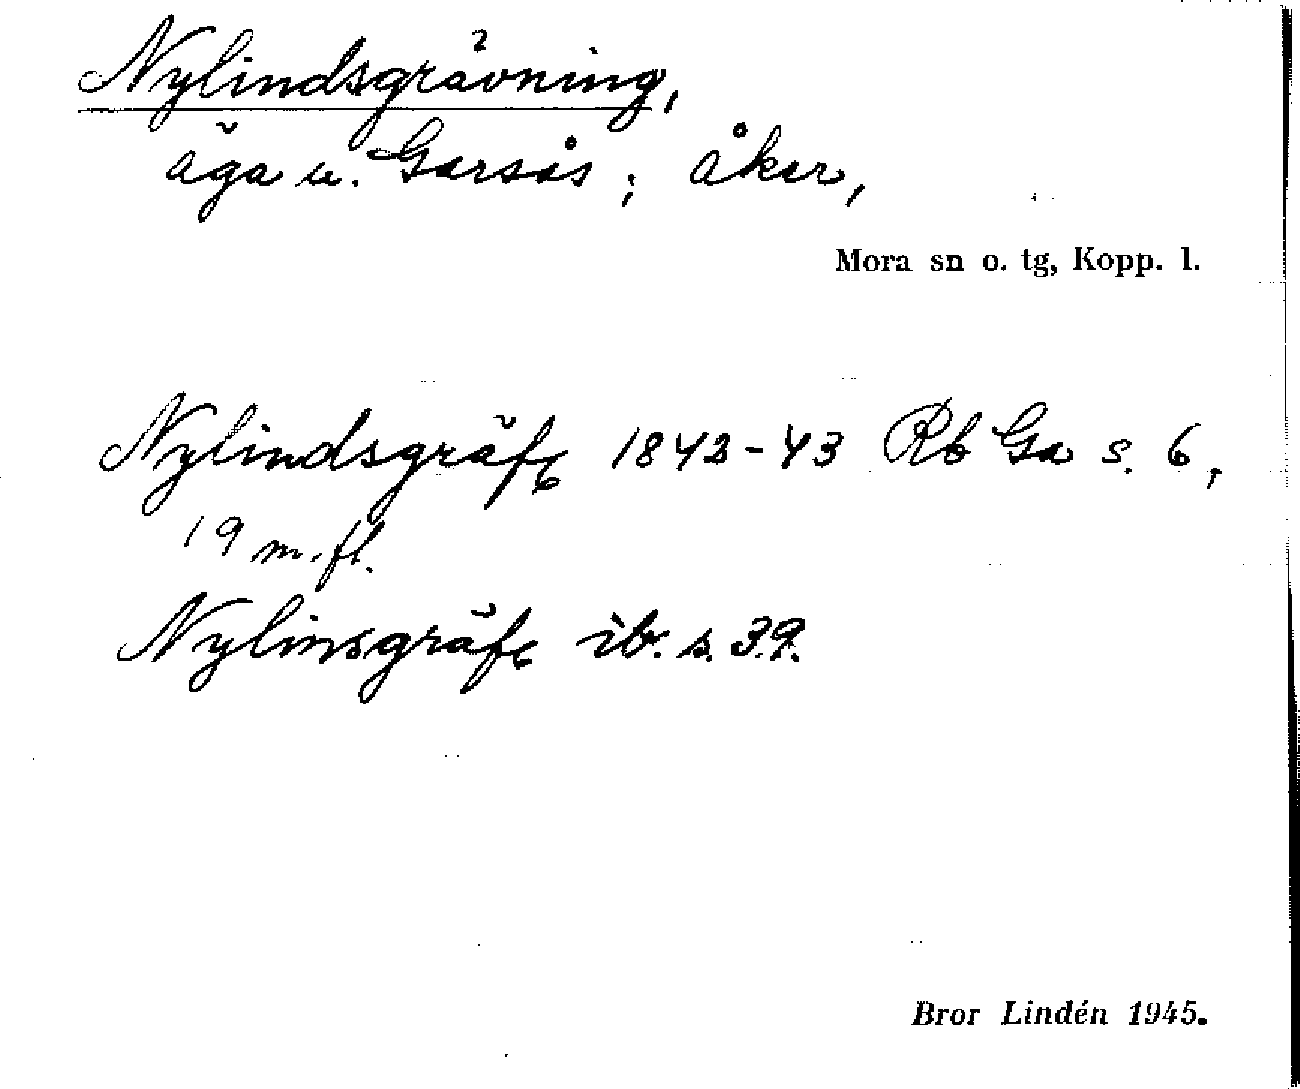 Nylindsgrävning,
äga u. Garsås; åker,
Mora sn o. tg, Kopp. l.
Nylindsgräfg 1842-43 Rb Ga s. 6,
19 m. fl.
Nylinsgräfg ib. s. 39.
Bror Lindén 1945.